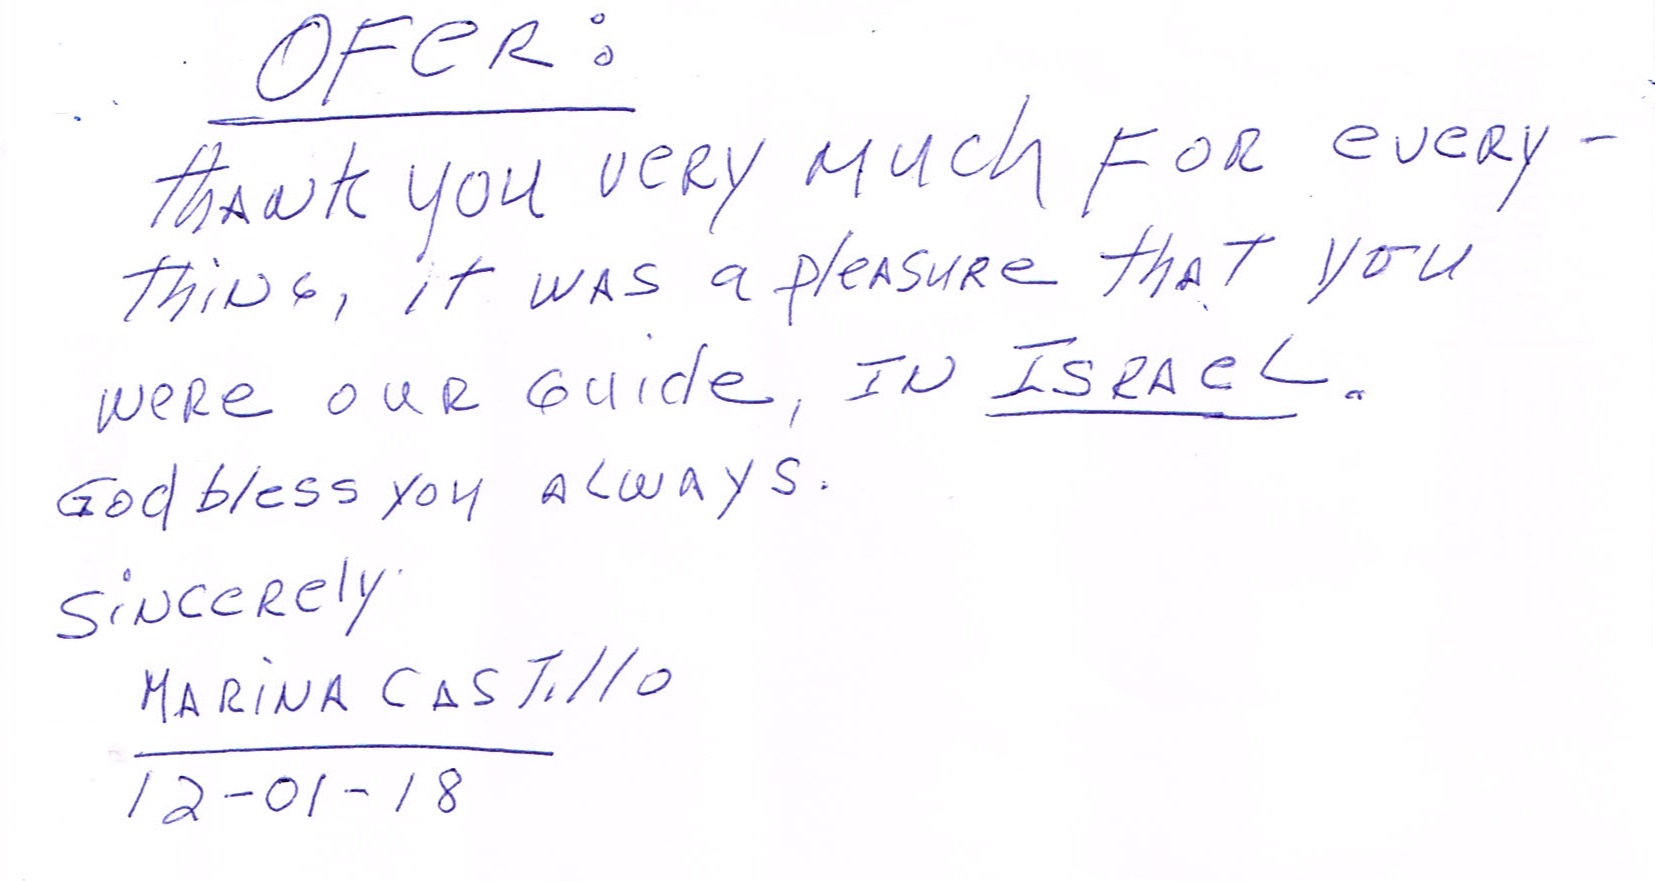 OFER:
thANK you VERY MUCH FOR EVERY-
thiNG, it WAS a pleASURe thAT you
WeRe OUR Guide, IN ISRAEL.
God bless you ALWAYS.
SiNCeRely
MARiNA CASTillo
12-01-18